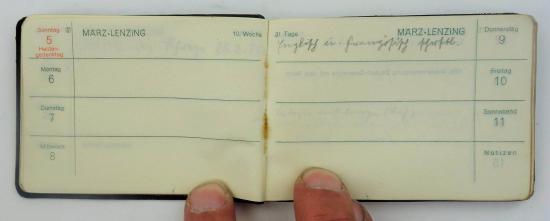 Sonntag
5
Helden-
gedenktag
MÄRZ-LENZING
10. Woche
Montag
6
Dienstag
7
Mittwoch
8
31. Tage
MÄRZ-LENZING
Donnerstag
9
Englisch u. Französisch schriftl.
Freitag
10
Sonnabend
11
Notizen